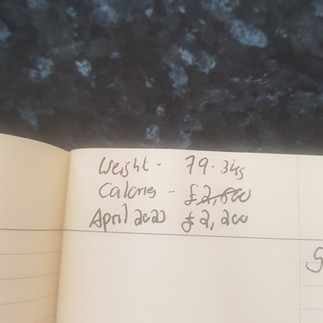 Weight - 79.3kg
Calories - £2,800
April 2020 £2,200